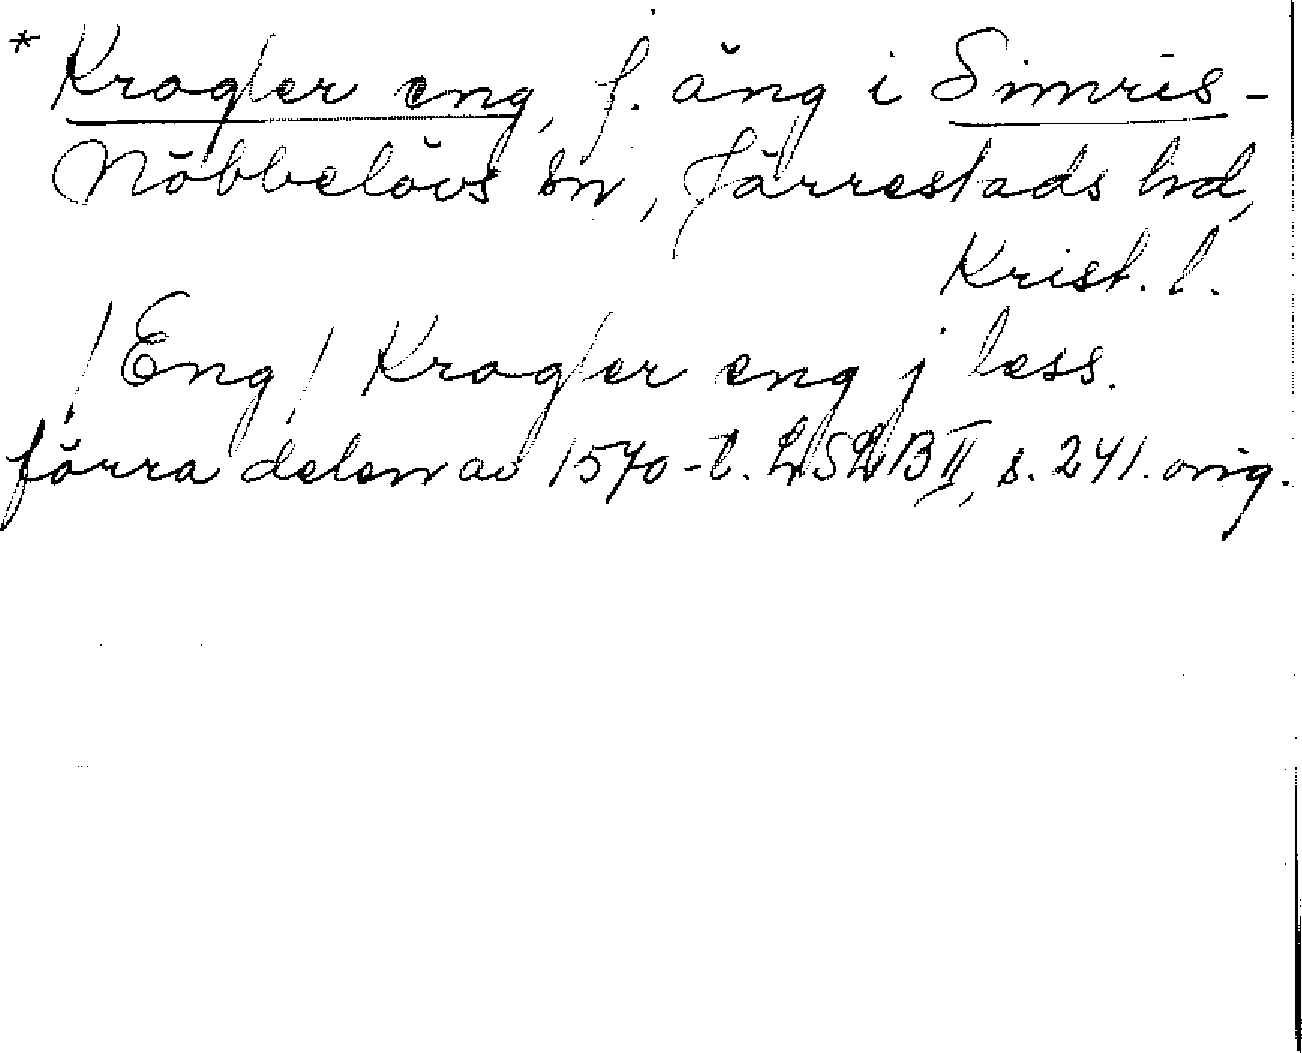 * Krogler eng, f. äng i Simris-
Nöbbelövs sn, Järrestads hd,
Krist. l.
/Eng/ Krogler eng j less.
förra delen av 1570-t. LSLB II, s. 241. orig.